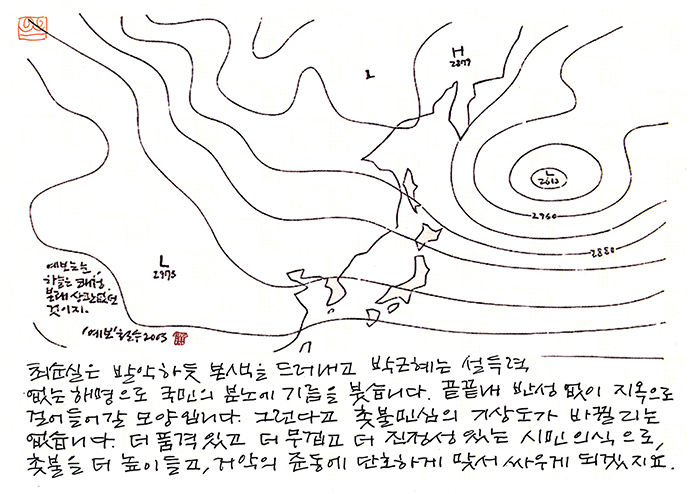 H
2879
L
L
2612
2960
2880
L
2975
예보는 눈,
하늘은 쾌청.
본래 상관없던
것이지.
'예보' 철수 2003
최순실은 발악하듯 본색을 드러내고 박근혜는 설득력
없는 해명으로 국민의 분노에 기름을 붓습니다. 끝끝내 반성 없이 지옥으로
걸어들어갈 모양입니다. 그런다고 촛불민심의 기상도가 바뀔리는
없습니다. 더 품격있고 더 무겁고 더 진정성 있는 시민의식으로,
촛불을 더 높이 들고, 거악의 준동에 단호하게 맞서 싸우게 되겠지요.